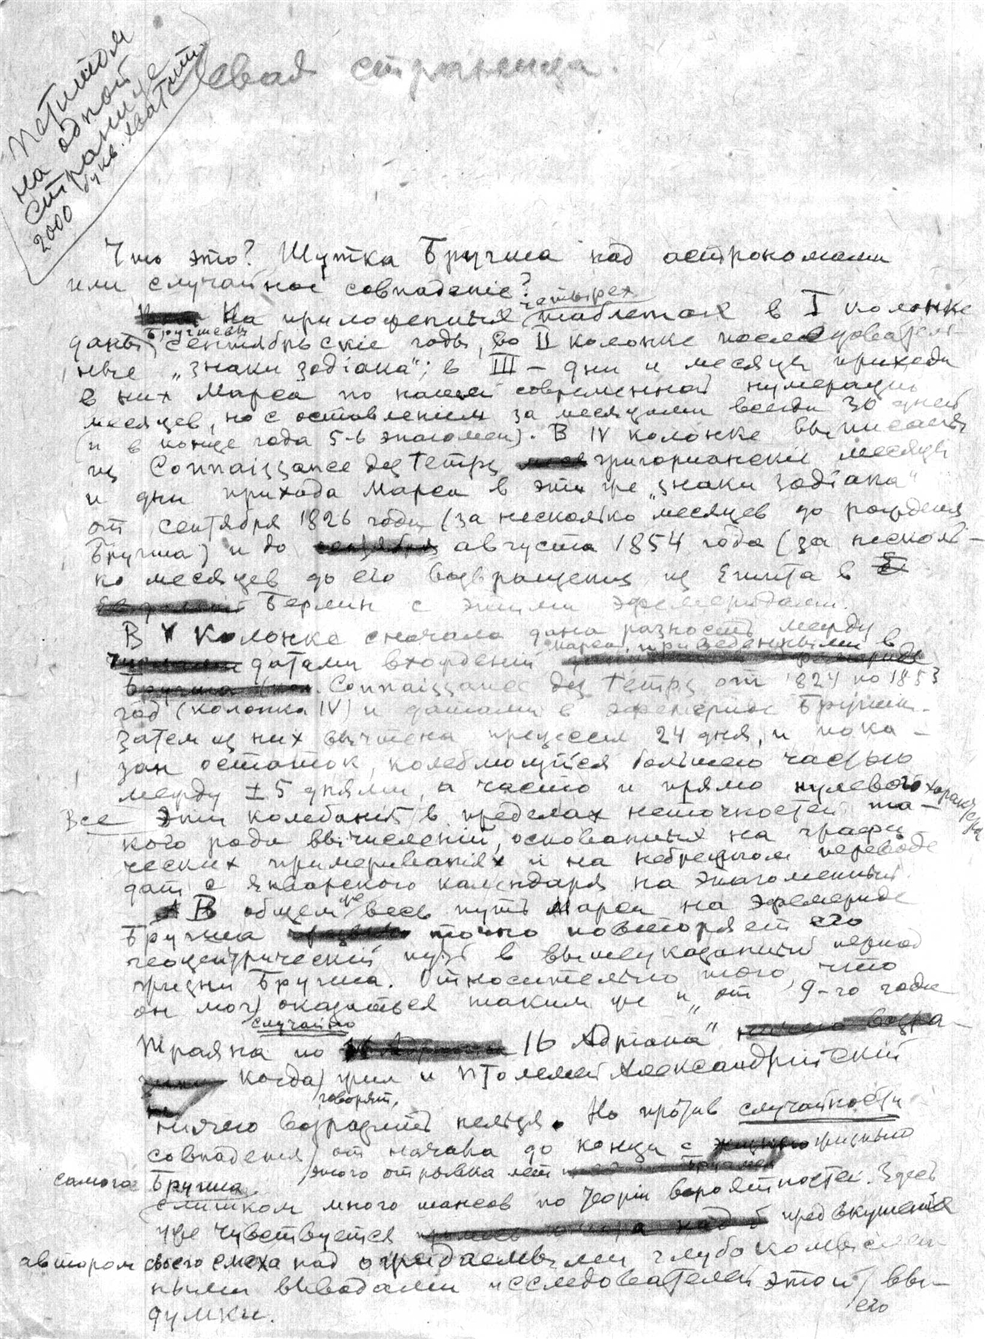 Левая страница.
петитом
на одной
странице
2000 букв. хватит
Что это? Шутка Бругша над астрономами
или случайное совпаденіе?
На приложенных четырех таблетках в I колонке
даны Бругшевы сентябрьскіе годы, во II колонке последователь-
ные „знаки зодіака“; в III – дни и месяцы прихода
в них Марса по нашей современной нумерации
месяцев, но с оставленіем за месяцами всегда 30 дней
(и в конце года 5-ь эпагомен). В IV колонке выписаны
из Connaissance des Temps григорианские месяцы
и дни прихода Марса в эти же „знаки зодіака“
от сентября 1826 года (за несколько месяцев до рождения
Бругша) и до августа 1854 года (за несколь-
ко месяцев до его возвращения из Египта в
Берлин с этими эфемеридами.
В V колонке сначала дана разность между
датами вхождений Марса, приведенными в
Connaissance des Temps от 1827 по 1853
год (колонка IV) и датами в эфемериде Бругша.
Затем из них вычтена прецессия 24 дня, и пока-
зан остаток, колеблющийся большею частью
между ±5 днями, а часто и прямо нулевого характера
Все эти колебанія в пределах неточностей та-
кого рода вычислений, основанных на графи-
ческих примериваніях и на небрежном переводе
дат с январского календаря на эпагоменный.
В общем же весь путь Марса на эфемериде
Бругша точно повторяет его
геоцентрический путь в вышеуказанный период
жизни Бругша. Относительно того, что
он мог случайно оказаться таким же и „от 9-го года
Траяна по 16 Адріана“
когда, говорят, жил и Птолемей Александрійскій
ничего возразить нельзя. Но против случайности
совпадения от начала до конца с жизнью
самого Бругша этого отрывка лет
слишком много шансов по теоріи вероятностей. Здесь
уже чувствуется предвкушение
автором своего смеха над ожидаемыми глубокомыслен-
ными выводами исследователей этой его вы-
думки.